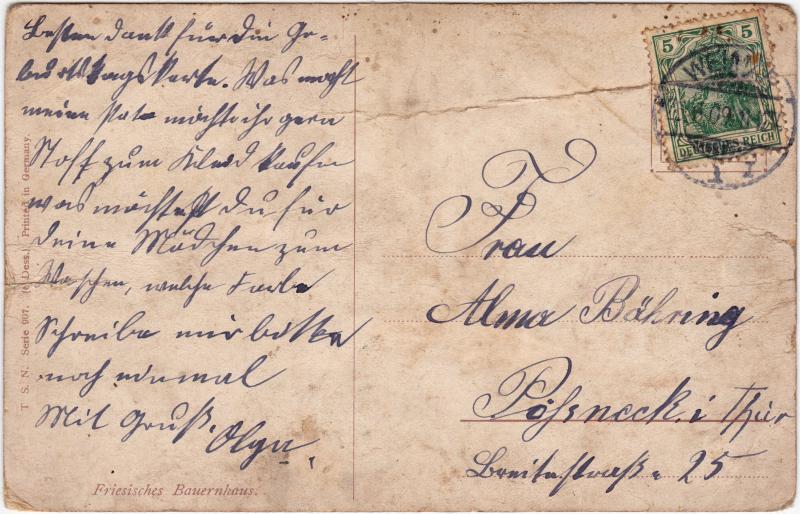 Besten dank für die Ge-
burtstagskarte. Was macht
meine möchte ihr gern
Stoff zum Kleid kaufen
was möchtest Du für
deine Mädchen zum
Waschen, welche Farbe
Schreibe mir bitte
noch einmal
Mit Gruß.
Olga.
Friesisches Bauernhaus.
T. S. N. Serie 907. (6 Dess.) Printed in Germany.
5 5
DEUTSCHES REICH
Frau
Alma Bähring
Pößneck. i Thür
Breitestraße 25